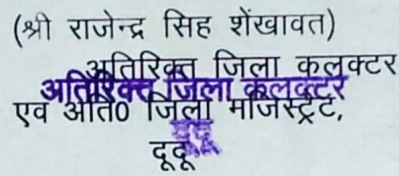 (श्री राजेन्द्र सिंह शेंखावत)
अतिरिक्त जिला कलक्टर
अतिरिक्त जिला कलक्टर
एवं अति0 जिला मजिस्ट्रेट,
दूदू
दूदू